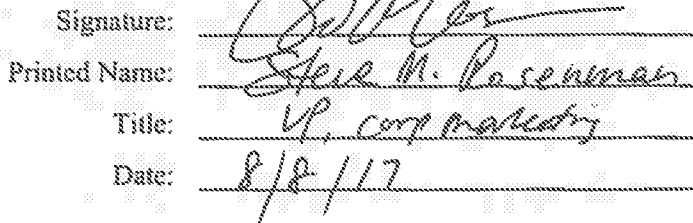 Signature:
Printed Name: Steve M.
Title: VP, corp marketing
Date: 8/8/17